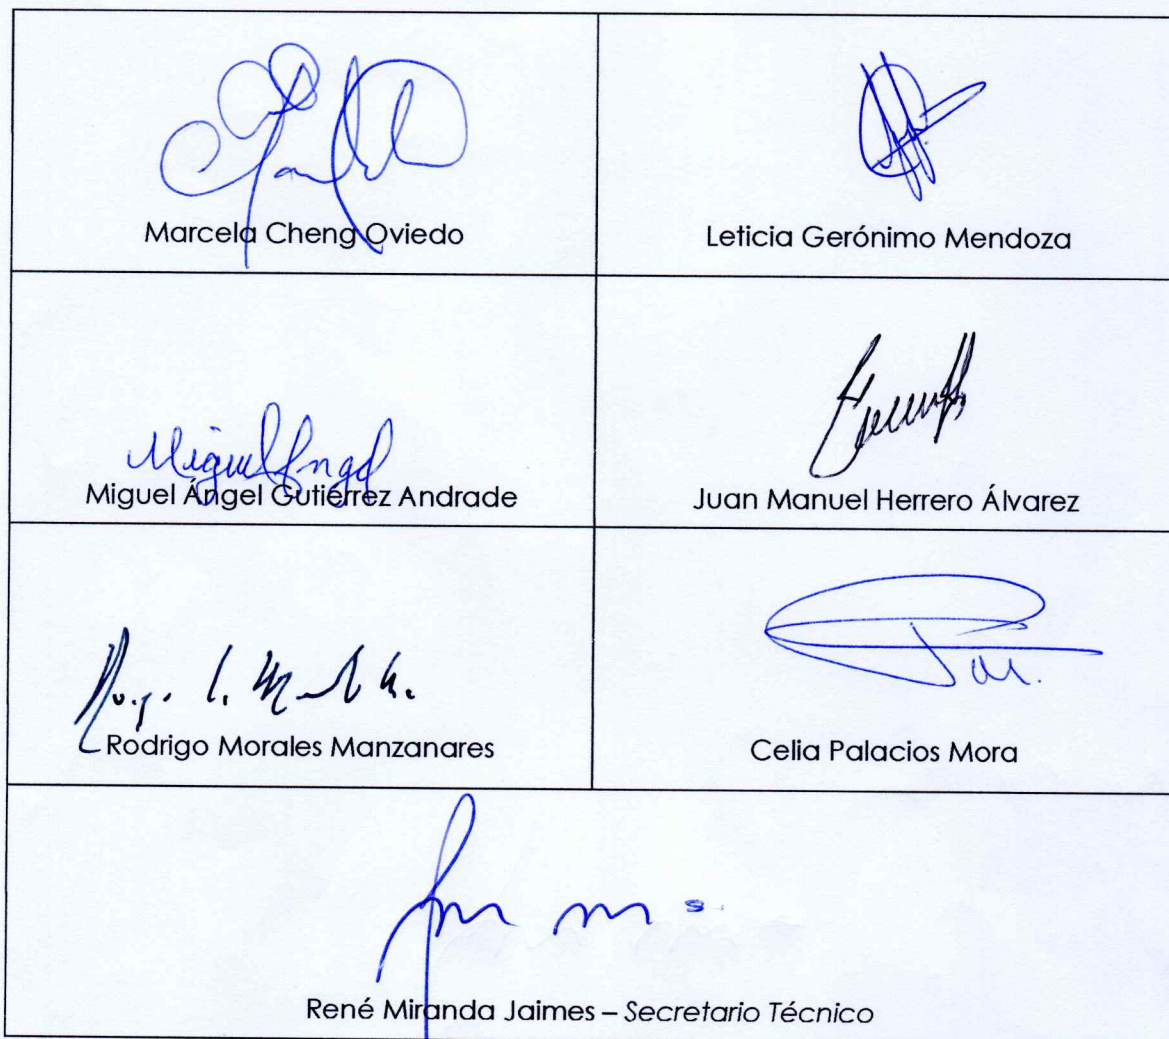 Marcela Cheng Oviedo
Leticia Gerónimo Mendoza
Miguel Angel
Miguel Ángel Gutiérrez Andrade
Juan Manuel Herrero Álvarez
Rodrigo Morales Manzanares
Celia Palacios Mora
René Miranda Jaimes – Secretario Técnico